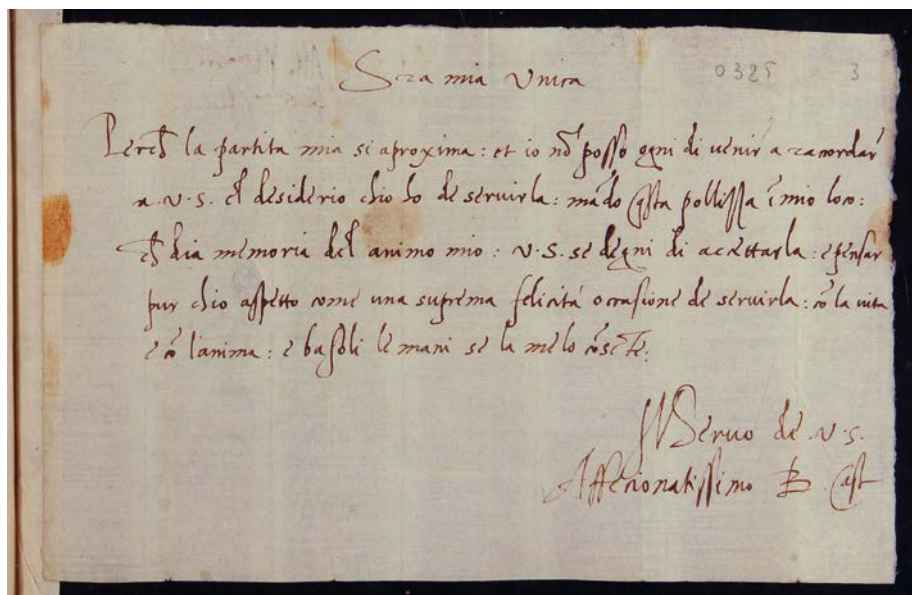 Sra mia Unica
0325 3
Perch la partita mia si aproxima: et io nō posso ogni dì venir a racordar
a .v.s. el desiderio ch'io ho de servirla: mādo qsta pollissa ī mio loco:
ch dia memoria del animo mio: v.s. se degni di accettarla: e pensar
pur ch'io aspetto come una suprema felicità occasione de servirla: cō la vita
e cō l'anima: e basoli le mani se la me lo cōsēte:
Servo de .v.s.
Affecionatissimo B. Cast